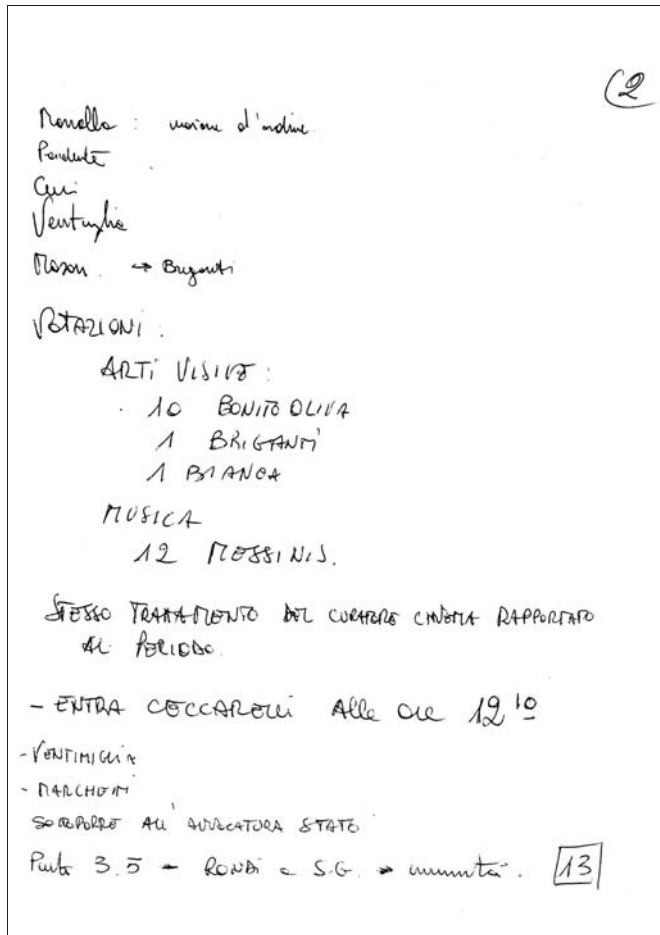 (2
: mozione d'ordine
Pendente
Ceri
Ventimiglia
→ Briganti
VOTAZIONI:
ARTI VISIVE:
10 BONITO OLIVA
1 BRIGANTI
1 BIANCA
MUSICA
12 MESSINIS.
STESSO TRATTAMENTO DEL CURATORE CINEMA RAPPORTATO
AL PERIODO.
- ENTRA CECCARELLI Alle ore 12 10
- VENTIMIGLIA
- MARCHETTI
SOTTOPORRE ALL'AVVOCATURA STATO
Punto 3.5 - RONDI e S.G. → unanimità. 13